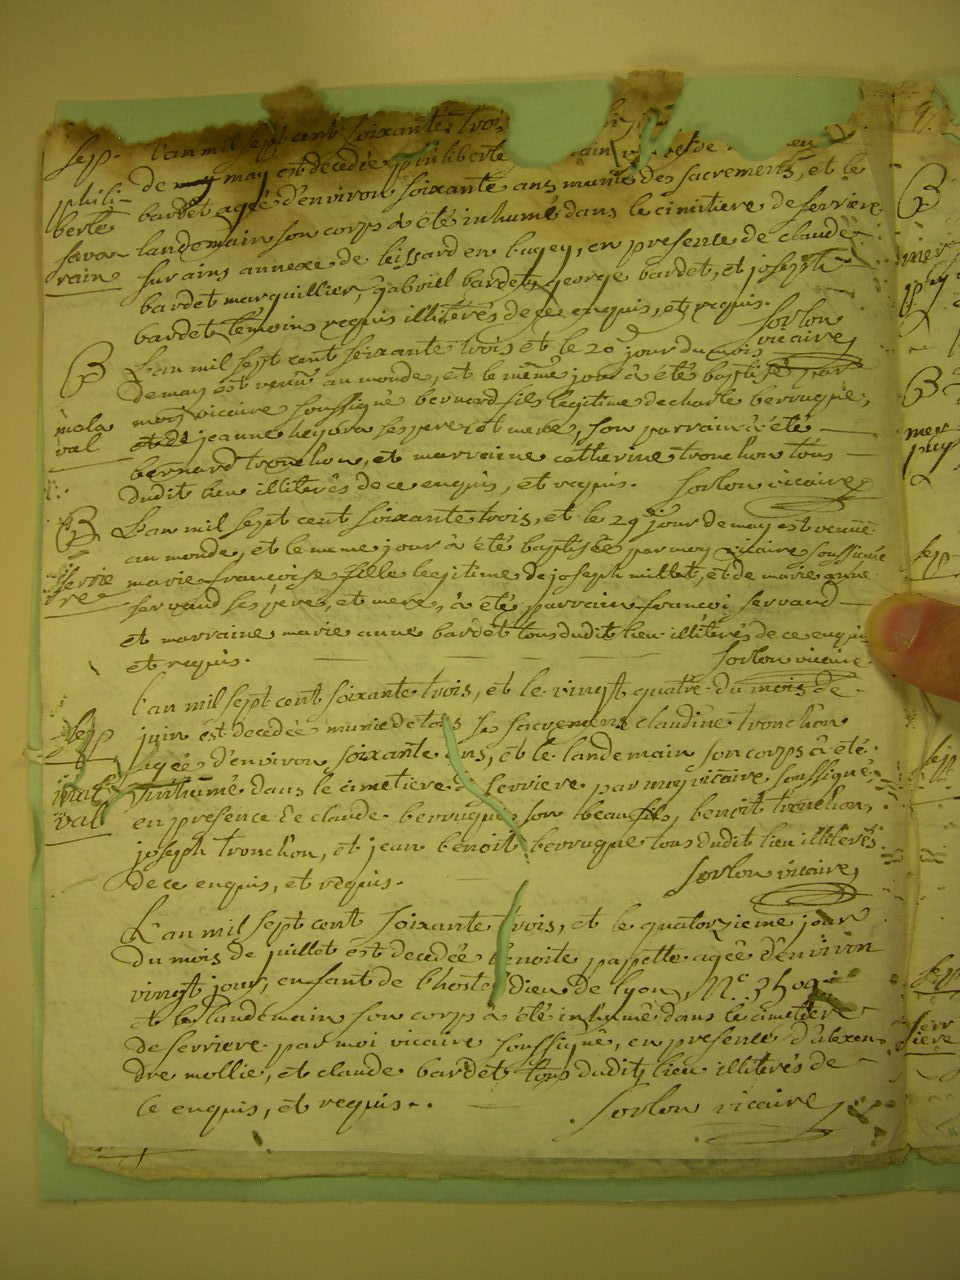 Sep.
l'an mil sept cent soixante trois
phili-
berte
favo-
rain
de may est decedée philiberte
bardet agée d'environ soixante ans munie des sacremens, et le
landemain son corps a été inhumé dans le cimitiere de serriere
sur ains annexe de leissard en bugey, en presence de claude
bardet marguillier, gabriel bardet, george bardet, et joseph
bardet témoins requis illiterés de ce enquis, et requis.
sorlon
vicaire
B
mola
val
L'an mil sept cent soixante trois et le 20e jour du mois
de may est venu au monde, et le même jour a été baptisé par
moy vicaire soussigné bernard fils legitime de charle berruque,
et de jeanne ses pere et mere, son parrain a été
bernard tronchon, et marraine catherine tronchon tous
dudit lieu illiterés de ce enquis, et requis. sorlon vicaire
B
serrie
re
L'an mil sept cent soixante trois, et le 29e jour de may est venue
au monde, et le meme jour a été baptisée par moy vicaire soussigné
marie françoise fille legitime de joseph millet, et de marie anne
servand ses pere, et mere, a été parrain françoi servand
et marraine marie anne bardet tous dudit lieu illiterés de ce enquis
et requis. sorlon vicaire
Sep
mola
val
l'an mil sept cent soixante trois, et le vingt quatre du mois de
juin est decedée munie de tous les sacremens claudine tronchon
agée d'environ soixante ans, et le landemain son corps a été
inhumé dans le cimetiere de serriere par moy vicaire soussigné
en presence de claude berruque son beaufils, benoit tronchon,
joseph tronchon, et jean benoit berruque tous dudit lieu illiterés
de ce enquis, et requis. sorlon vicaire
L'an mil sept cent soixante trois, et le quatorzieme jour
du mois de juillet est decedée benoite papette agée d'environ
vingt jour, enfant de l'hostel dieu de lyon,
et le landemain son corps a été inhumé dans le cimetiere
de serriere par moi vicaire soussigné, en presence d'alexan
dre mollie, et claude bardet tous dudit lieu illiterés de
ce enquis, et requis. sorlon vicaire